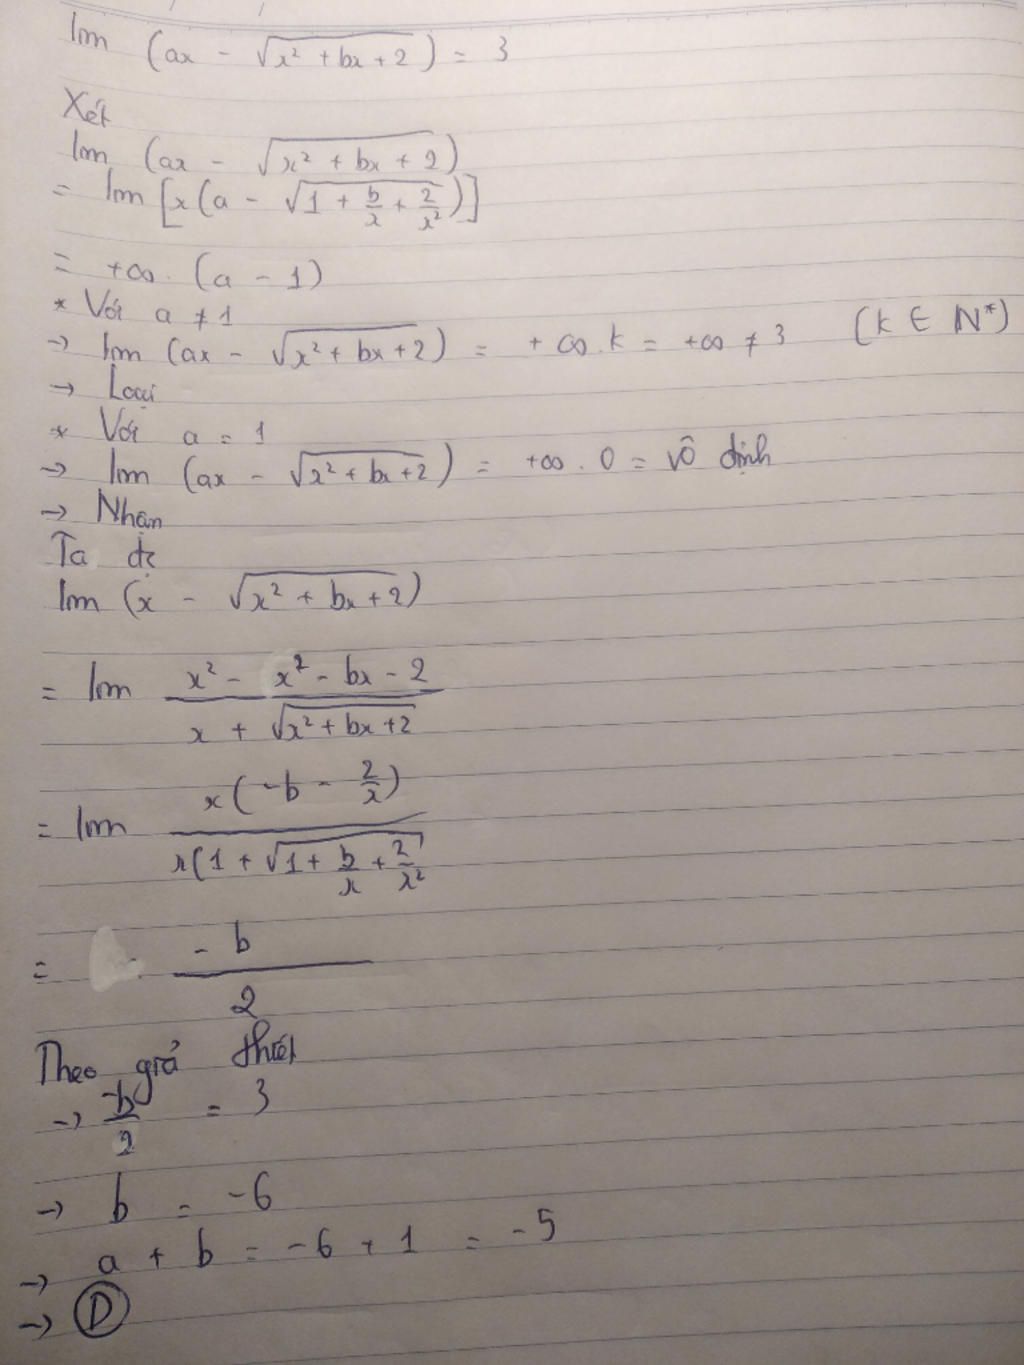 lim (ax - √(x² + bx + 2)) = 3
Xét
lim (ax - √(x² + bx + 2))
= lim [x(a - √(1 + b/x + 2/x²))]
= +∞ . (a - 1)
* Với a ≠ 1
→ lim (ax - √(x² + bx + 2)) = +∞.k = +∞ ≠ 3 (k ∈ N*)
→ Loại
* Với a = 1
→ lim (ax - √(x² + bx + 2)) = +∞ . 0 = vô định
→ Nhận
Ta đc
lim (x - √(x² + bx + 2))
= lim (x² - x² - bx - 2)/(x + √(x² + bx + 2))
= lim x(-b - 2/x)/x(1 + √(1 + b/x + 2/x²)
= -b/2
Theo giả thiết
→ -b/2 = 3
→ b = -6
→ a + b = -6 + 1 = -5
→ D